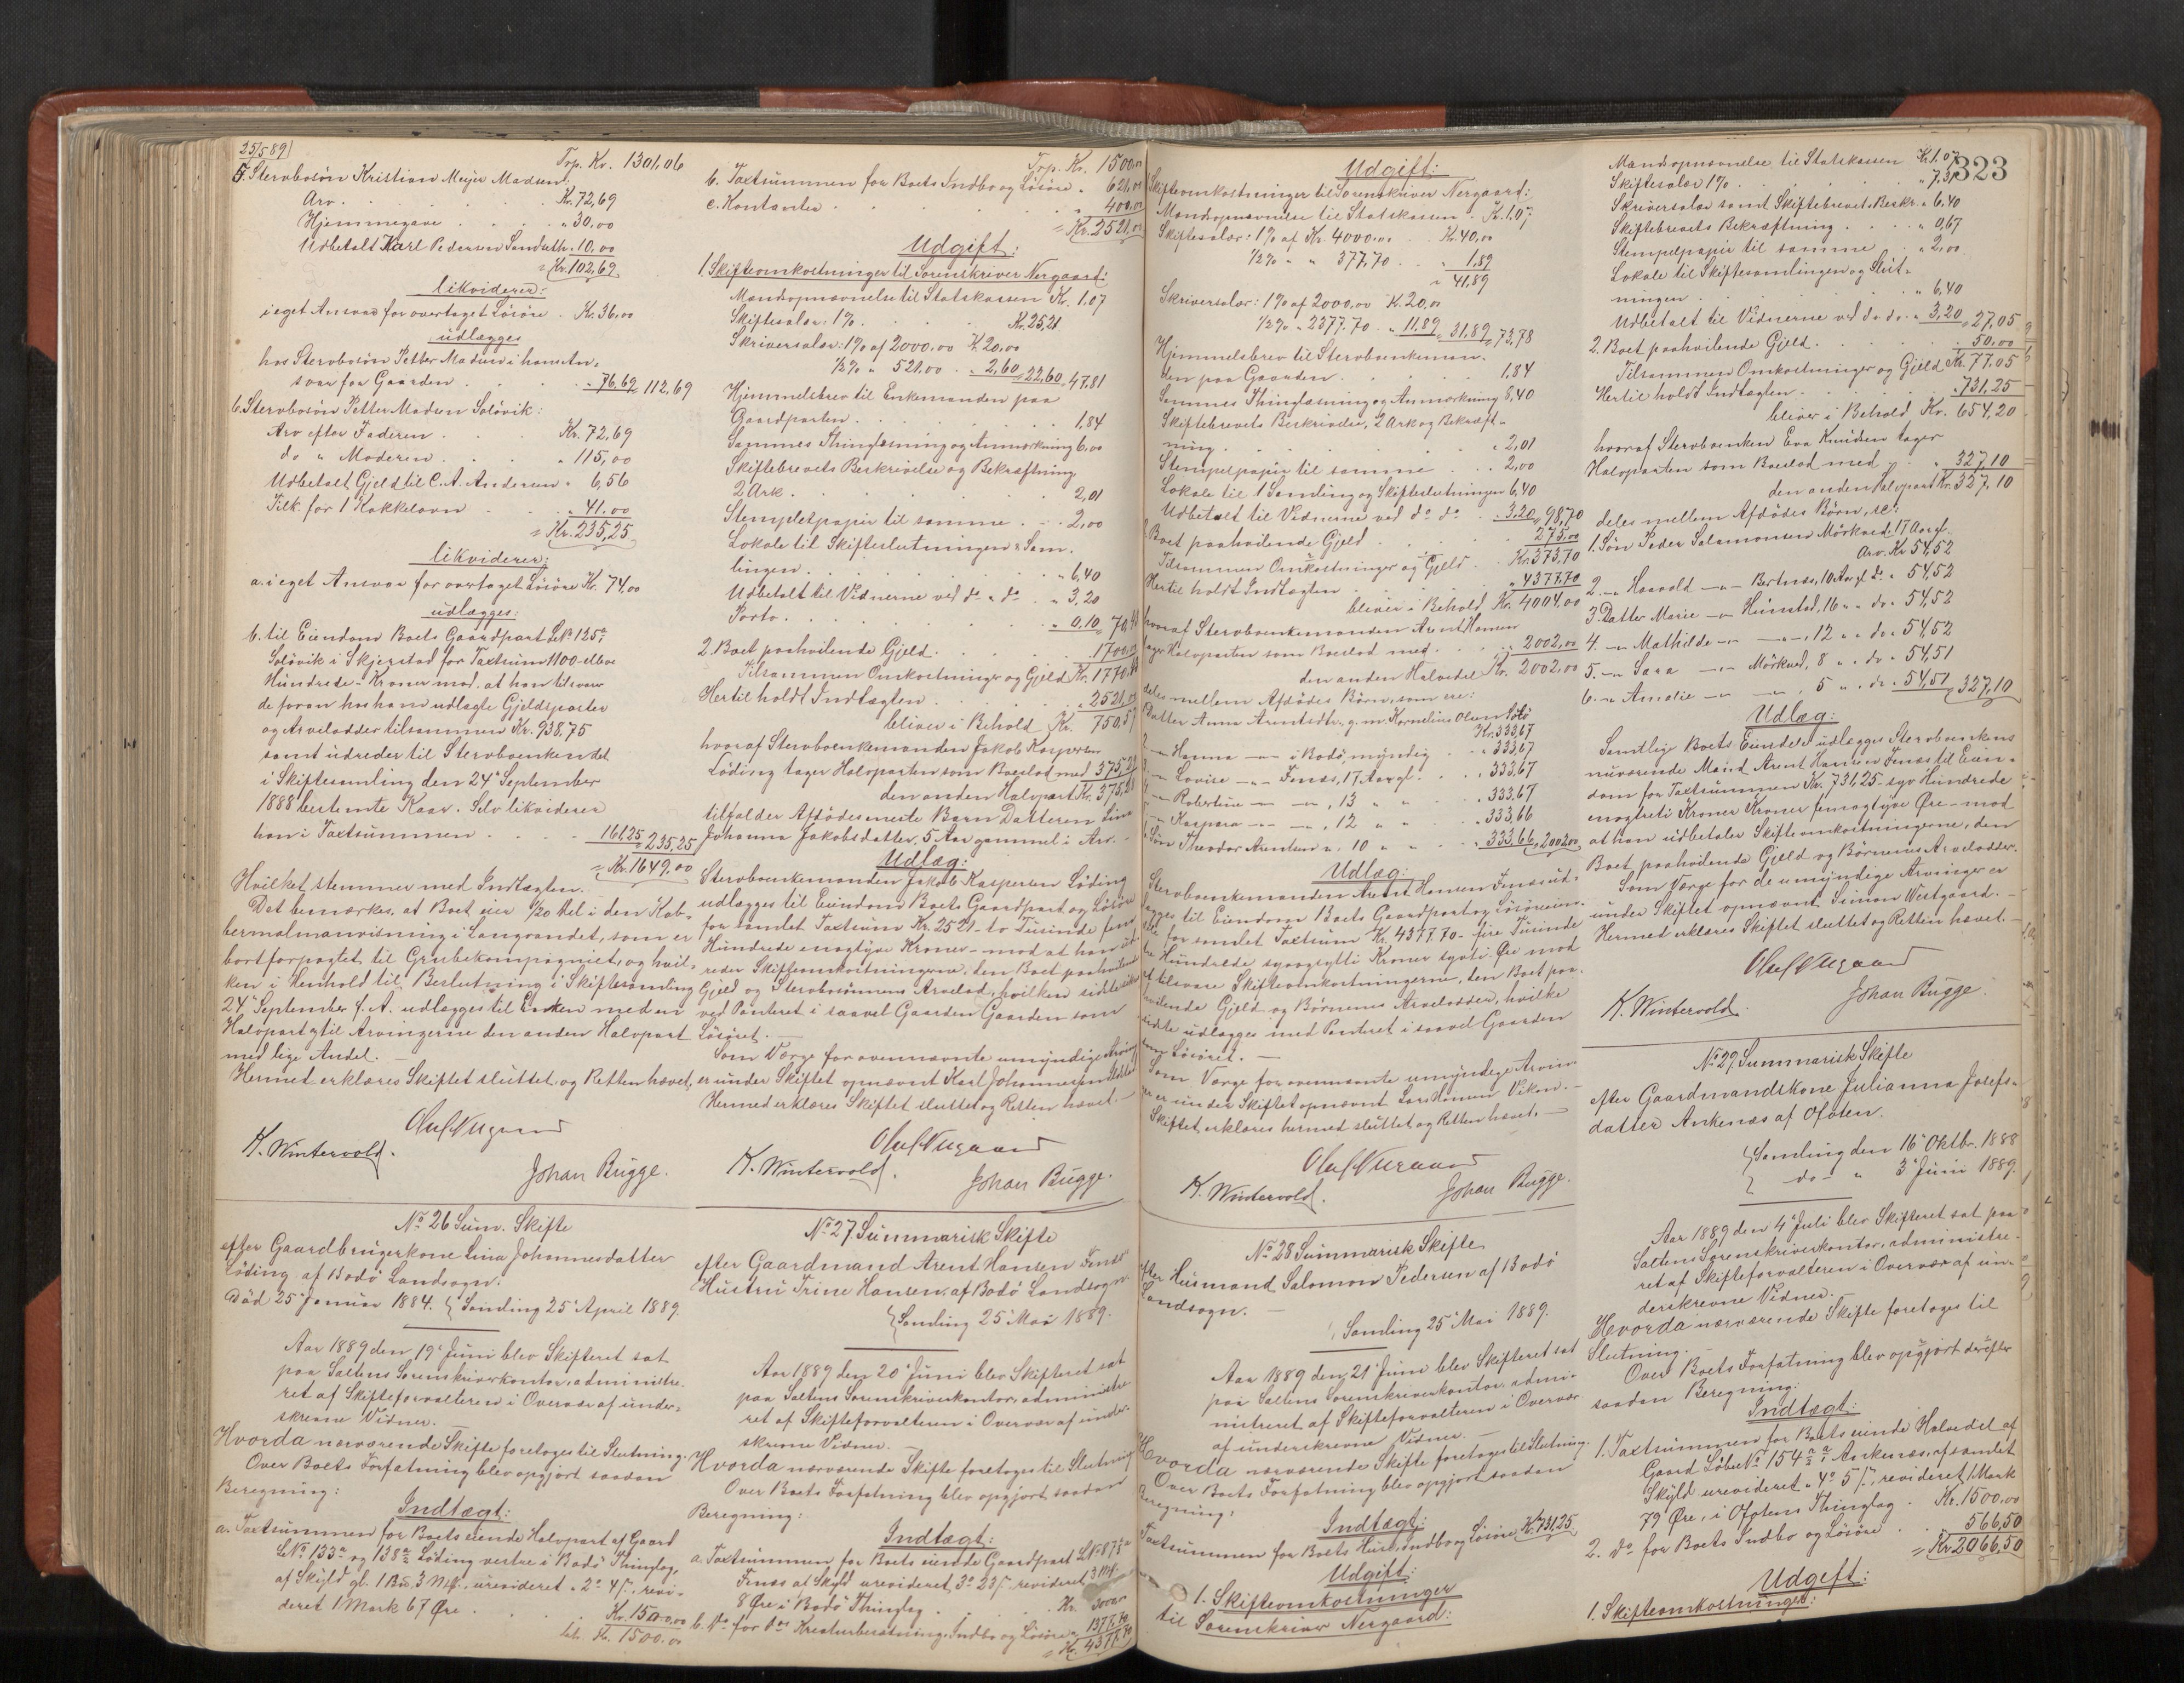 25/589
Trp. Kr. 1301,06
5. Stervbosøn Kristian Meyer Madsen:
Arv . . . Kr. 72,69
Hjemmegave . . . " 30,00
Udbetalt Karl Pedersen Sandnth. " 10,00
= Kr. 102,69
likviderer:
i eget Ansvar for overtaget Løsøre . Kr. 36,00
udlægges
hos Stervbosøn Petter Madsen i hans An-
svar for Gaarden . . . " 76,69 = 112,69
6. Stervbosøn Petter Madsen Soløvik:
Arv efter Faderen . . Kr. 72,69
do " Moderen . . " 115,00
Udbetalt Gjeld til C. A. Andersen " 6,56
Tilk. for 1 Kakkelovn . . " 41,00
= Kr. 235,25
likviderer:
a. i eget Ansvar for overtaget Løsøre Kr. 74,00
udlægges:
b. til Eiendom Boets Gaardpart LNr 125a
Soløvik i Skjerstad for Taxtsum 1100 - elleve
Hundrede - Kroner mod, at han tilsvarer
de foran hos ham udlagte Gjeldsposter
og Arvelodder tilsammen Kr. 938,75
samt udreder til Stervboenken det
i Skiftesamling den 24de September
1888 bestemte Kaar. Selv likviderer
han i Taxtsummen . . . 161,25 = 235,25
= Kr. 1649,00
Hvilket stemmer med Indtægten.
Det bemærkes, at Boet eier 1/20 Del i den Kob-
bermalmanvisning i Langvandet, som er
bortforpagtet til Grubekompagniet, og hvil-
ken i Henhold til Beslutning i Skiftesamling
24de September f. A. udlægges til Enken med en
Halvpart og til Arvingerne den anden Halvpart
med lige Andel. —
Hermed erklæres Skiftet sluttet og Retten hævet.
Oluf Nergaard
K. Wintervold.
Johan Bugge.
No 26 Sum. Skifte
efter Gaardbrugerkone Lina Johannesdatter
Løding af Bodø Landsogn.
Død 25de Januar 1884. { Samling 25de April 1889.
Aar 1889 den 19de Juni blev Skifteret sat
paa Saltens Sorenskriverkontor, administre-
ret af Skifteforvalteren i Overvær af under-
skrevne Vidner. —
Hvorda nærværende Skifte foretages til Slutning.
Over Boets Forfatning blev opgjort saadan
Beregning:
Indtægt:
a. Taxtsummen for Boets eiende Halvpart af Gaard
LNo 133a og 138a Løding vestre i Bodø Thinglag,
af Skyld gl. 1 Bu 3 Mk., urevideret " 2 " 4 ß, revi-
deret 1 Mark 67 Øre . . . Kr. 1500,00
Lat. Kr. 1500.00
Trp. Kr. 1500,00
b. Taxtsummen for Boets Indbo og Løsøre " 621,00
c. Kontanter . . . " 400,00
= Kr. 2521,00
Udgift:
1. Skifteomkostninger til Sorenskriver Nergaard:
Mandopnævnelse til Statskassen Kr. 1,07
Skiftesalær: 1% . . . Kr. 25,21
Skriversalær: 1% af 2000.00 K. 20,00
1/2% " 521,00 . " 2,60 = 22,60 = 47,81
Hjemmelsbrev til Enkemanden paa
Gaardparten . . . 1,84
Sammes Thinglæsning og Anmærkning 6,00
Skiftebrevets Beskrivelse og Bekræftning
2 Ark . . . 2,01
Stempletpapir til samme . . . 2,00
Lokale til Skifteslutningen & Sam-
lingen . . . " 6,40
Udbetalt til Vidnerne ved do " do . " 3,20
Porto . . . " 0,10 = 70,43
2. Boet paahvilende Gjeld . . . 1700,00
Tilsammen Omkostninger og Gjeld Kr. 1770.43
Hertil holdt Indtægten . . . " 2521,00
bliver i Behold Kr. 750,57
hvoraf Stervboenkemanden Jakob Kaspersen
Løding tager Halvparten som Boeslod med 375,29
den anden Halvpart Kr. 375,28
tilfalder Afdødes eneste Barn Datteren Lina
Johanna Jakobsdatter, 5 Aar gammel i Arv. —
Udlæg:
Stervboenkemanden Jakob Kaspersen Løding
udlægges til Eiendom Boets Gaardpart og Løsøre
for samlet Taxtsum Kr. 2521 - to Tusinde fem
Hundrede enogtyve Kroner - mod at han ud-
reder Skifteomkostningerne, den Boet paahvilende
Gjeld og Stervbosønnens Arvelod, hvilken sidste sikres
ved Panteret i saavel Gaarden Gaarden som
Løsøret. —
Som Værge for ovennævnte umyndige Arving
er under Skiftet opnævnt Karl Johannessen
Hermed erklæres Skiftet sluttet og Retten hævet. —
Oluf Nergaard
K. Wintervold.
Johan Bugge.
No 27 Summarisk Skifte
efter Gaardmand Arent Hansen Fenes'
Hustru Trine Hansen, af Bodø Landsogn.
{ Samling 25de Mai 1889.
Aar 1889 den 20de Juni blev Skifteret sat
paa Saltens Sorenskriverkontor, administre-
ret af Skifteforvalteren i Overvær af under-
skrevne Vidner. —
Hvorda nærværende Skifte foretages til Slutning.
Over Boets Forfatning blev opgjort saadan
Beregning:
Indtægt:
a. Taxtsummen for Boets eiende Gaardpart LNo 87
Fenes af Skyld urevideret 3 " 23 ß, revideret 3 Mk.
8 Øre i Bodø Thinglag . . . Kr. 3000,00
b. Do for dens Kreaturbesætning, Indbo og Løsøre " 1377,70
= Kr. 4377,70
Udgift:
Skifteomkostninger til Sorenskriver Nergaard:
Mandopnævnelse til Statskassen . K. 1.07
Skiftesalær: 1% af Kr. 4000.00 . Kr. 40,00
1/2% " " 377,70 . . " 1,89
" 41,89
Skriversalær: 1% af 2000,00 K. 20,00
1/2% " 2377.70 " 11,89 = 31,89 = 73,78
Hjemmelsbrev til Stervboenkeman-
den paa Gaarden . . . 1,84
Sammes Thinglæsning og Anmærkning 8,40
Skiftebrevets Beskrivelse, 2 Ark og Bekræft-
ning . . . " 2,01
Stempelpapir til samme . . . 2,00
Lokale til 1 Samling og Skifteslutningen 6,40
Udbetalt til Vidnerne ved do do . . 3,20 = 98,70
Boet paahvilende Gjeld . . . 275,00
Tilsammen Omkostninger og Gjeld . Kr. 373,70
Hertil holdt Indtægten . . . " 4377,70
bliver i Behold Kr. 4004,00
hvoraf Stervboenkemanden Arent Hansen
tager Halvparten som Boeslod med . . 2002,00
den anden Halvdel Kr. 2002,00
deles mellem Afdødes Børn, som ere:
Datter Anna Arentsdtr., g. m. Kornelius Olsen
Kr. 333,67
" Hanna — " — i Bodø, myndig . " 333,67
" Lovise — " — Fenes, 17 Aar gl. . " 333,67
" Robertine — " — " —, 13 " " . " 333,67
" Kaspara — " — " —, 12 " " . " 333,66
Søn Theodor Arentsen " . 10 " " . " 333,66 = 2002,00
Udlæg:
Stervboenkemanden Arent Hansen Fenes ud-
lægges til Eiendom Boets Gaardpart og Løsøreeien-
dele for samlet Taxtsum Kr. 4377.70 - fire Tusinde
tre Hundrede syvogsytti Kroner sytti Øre mod
at tilsvare Skifteomkostningerne, den Boet paa-
hvilende Gjeld og Børnenes Arvelodder, hvilke
sidste udlægges med Panteret i saavel Gaarden
som Løsøret. —
Som Værge for ovennævnte umyndige Arvin-
ger er under Skiftet opnævnt Lars Hansen Viken. —
Skiftet erklæres hermed sluttet og Retten hævet. —
Oluf Nergaard
K. Wintervold.
Johan Bugge.
No 28 Summarisk Skifte
efter Husmand Salomon Pedersen af Bodø
Landsogn. —
{ Samling 25de Mai 1889.
Aar 1889 den 21de Juni blev Skifteret sat
paa Saltens Sorenskriverkontor, admi-
nistreret af Skifteforvalteren i Overvær
af underskrevne Vidner. —
Hvorda nærværende Skifte foretages til Slutning.
Over Boets Forfatning blev opgjort saadan
Beregning:
Indtægt:
Taxtsummen for Boets Hus, Indbo og Løsøre Kr. 731,25
Udgift:
1. Skifteomkostninger
til Sorenskriver Nergaard:
323
Mandopnævnelse til Statskassen K. 1.07
Skiftesalær 1% . . . " 7,31
Skriversalær samt Skiftebrevets Beskr. " 6,40
Skiftebrevets Bekræftning . . . " 0,67
Stempelpapir til samme . . " 2,00
Lokale til Skiftesamlingen og Slut-
ningen . . . " 6,40
Udbetalt til Vidnerne ved do do . " 3,20 = 27,05
2. Boet paahvilende Gjeld . . . 50,00
Tilsammen Omkostninger og Gjeld Kr. 77,05
Hertil holdt Indtægten . . . " 731,25
bliver i Behold Kr. 654,20
hvoraf Stervboenken Eva Knudsen tager
Halvparten som Boeslod med . . " 327,10
den anden Halvpart Kr. 327,10
deles mellem Afdødes Børn, se:
1. Søn Peder Salamonsen Mørkved, 17 Aar gl.
Arv. Kr 54,52
2. — " Haavold — " — Bertnes, 10 Aar gl. do " 54,52
3. Datter Marie — " — Hunstad, 16 " " do " 54,52
4. — " Mathilde — " — " —, 12 " " do " 54,52
5. — " Sara — " — Mørkved, 8 " . do " 54,51
6. — " Amalie — " — " —, 5 " . do. 54,51 = 327,10
Udlæg:
Samtlige Boets Eiendele udlægges Stervboenkens
nuværende Mand Arent Hansen Fenes til Eien-
dom for Taxtsummen Kr. 731,25 - syv Hundrede
enogtreti Kroner Kroner femogtyve Øre - mod
at han udbetaler Skifteomkostningerne, den
Boet paahvilende Gjeld og Børnenes Arvelodder.
Som Værge for de umyndige Arvinger er
under Skiftet opnævnt Simon Westgaard. —
Hermed erklæres Skiftet sluttet og Retten hævet. —
Oluf Nergaard
K. Wintervold.
Johan Bugge.
No 29. Summarisk Skifte
efter Gaardmandskone Julianna Josefs-
datter Ankenæs af Ofoten.
{ Samling den 16de Oktbr. 1888
{ do — " 3de Juni 1889.
Aar 1889 den 4de Juli blev Skifteret sat paa
Saltens Sorenskriverkontor, administre-
ret af Skifteforvalteren i Overvær af un-
derskrevne Vidner. —
Hvorda nærværende Skifte foretages til
Slutning. —
Over Boets Forfatning blev opgjort derefter
saadan Beregning:
Indtægt:
1. Taxtsummen for Boets eiende Halvdel af
Gaard Løbe No 154a Ankenæs, af samlet
Skyld urevideret " 4 " 5 ß, revideret 1 Mark
79 Øre, i Ofotens Thinglag . Kr. 1500,00
2. do for Boets Indbo og Løsøre . . 566,50
= Kr 2066,50
Udgift:
1. Skifteomkostninger: